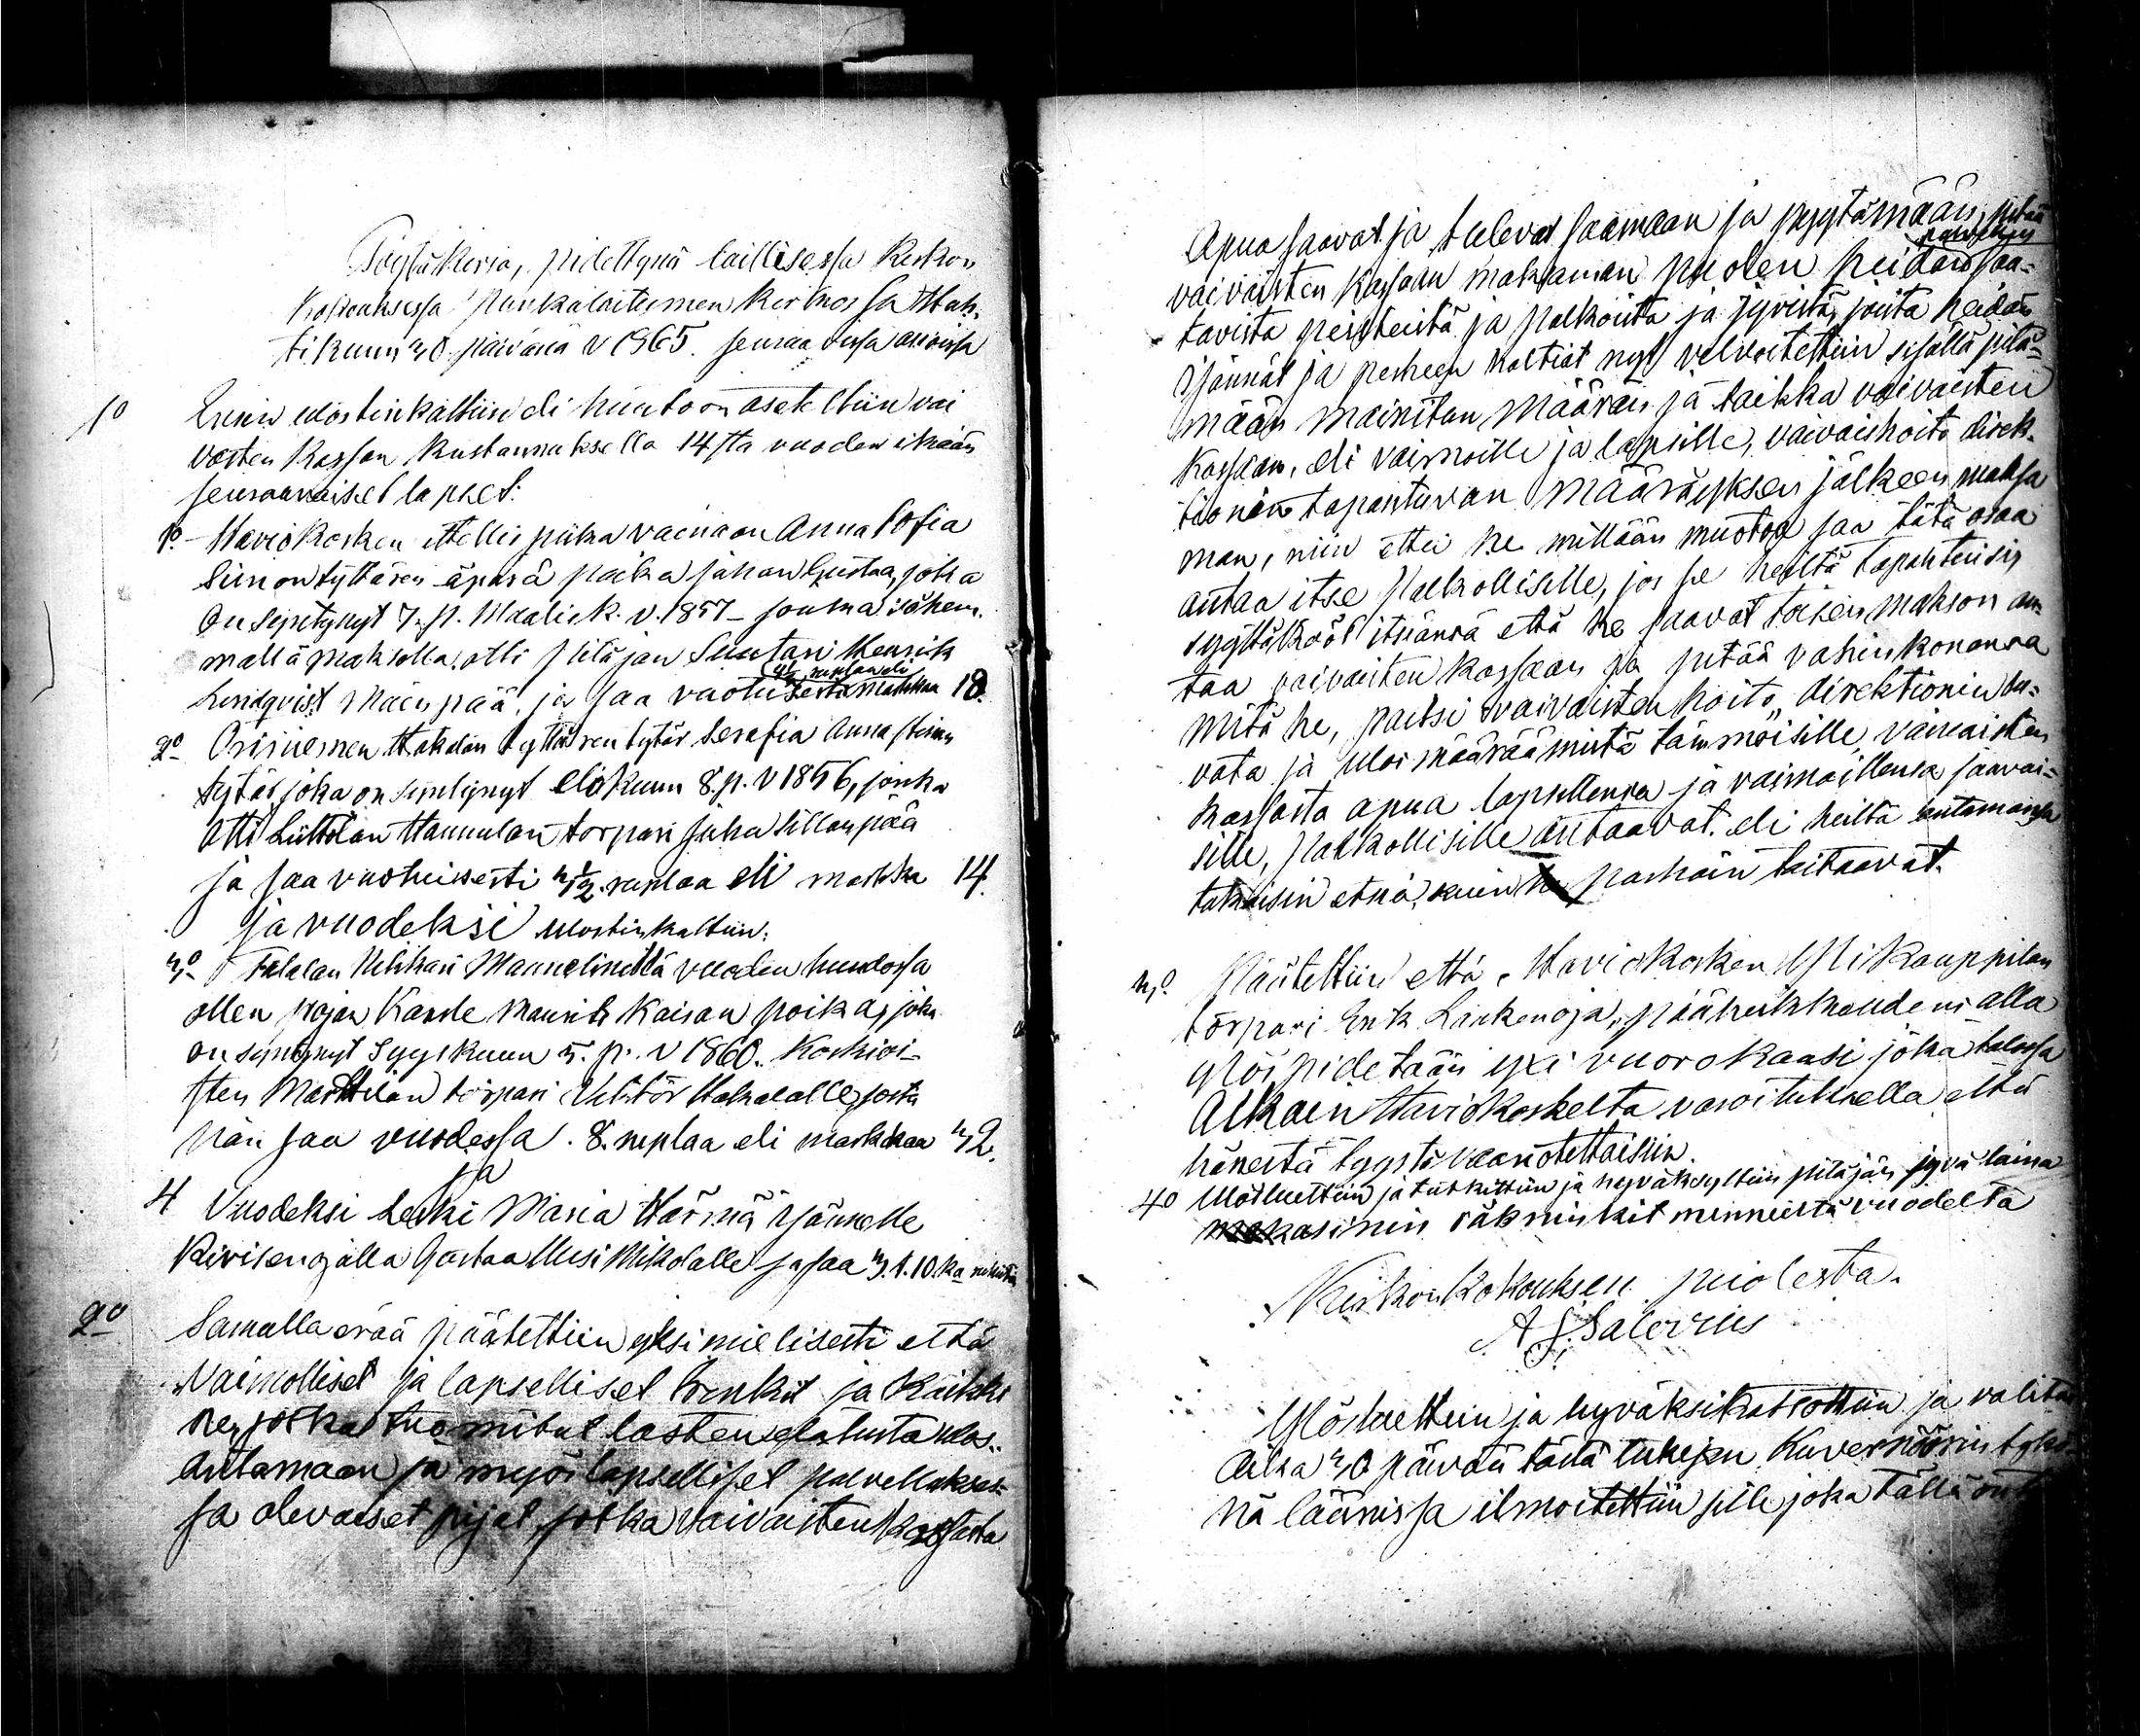 Pöytäkirja, pidettynä laillisessa Kirkon
Kokouksessa Punkalaitumen kirkossa Huh-
tikuun 30 päivänä v 1865. seuraavissa asioissa
1o Ensin ulostinkattiin eli huutoon asetettiin vai
vasten Kassan kustannuksella 14sta vuoden ikään
seuraavaiset lapset:
1o Haviokosken ittellis piika vainaan Anna Sofia
Simontyttären äpärä poika Johan Gustaa, joka
On Syntynyt 7. p. Maalisk. v. 1857 - jonka vähem.
mällä maksolla otti Pitäjän Suutari Henrik
Lindqvist Mäenpää, ja saa vuotisesta markkaa 18.
2o Orsiniemen Hakalan tyttären tytär Serafia Anna Stiinan
tytär, joka on Syntynyt elokuun 8. p. v 1856, jonka
Otti Liittolan Hannulan torpari Juha Sillanpää
ja saa vuotuisesti 3 1/2 ruplaa eli markkaa 14.
ja vuodeksi ulostinkattiin:
3o Talalan Uskkari Mannelinilla vuoden huudossa
ollen pojan Kalle Mauritz Kaisan poika, joka
on syntynyt Syyskuun 5. p. v 1860. Koskioi-
sten Marttilan torpari Viktor Hakalalle, josta
hän saa vuodessa. 8. ruplaa eli markkaa 32.
ja
4 Vuodeksi Leski Maria Härmä Yjännelle
Kivisenojalla Gustaa Uusi Mikolalle ja saa 3. t. 10. ka rukiita
2o Samalla erää päätettiin yksimielisesti että
Vaimolliset ja lapselliset Trenkit ja Kaikki
ne, jotka tuomitut lasten elatusta ulos..
Antamaan ja myös lapselliset palveluksis-
sa olevaiset pijat, jotka vaivaisten Kassasta
Apua saavat ja tulevat saamaan ja pyytämään, pitää
palveluis
vaivaisten kassaan maksaman puolen heidän saa-
tavista pesteistä ja palkoista ja jyvistä, joita heidän
Isännät ja perheen haltiat nyt velvoitettiin sisällä pitä-
mään mainitun Määrän ja taikka vaivaisten
Kassaan, eli vaimoille ja lapsille, vaivaishoito direk-
tionin tapahtuvan Määräyksen jälkeen maksa
man, niin ettei he millään muotoa saa tätä osaa
antaa itse Palkolliselle, jos se heiltä tapahtuisi,
syyttäkööt itsiänsä että he saavat toisen makson an
taa vaivaisten kassaan ja pitää vahinkonansa
mitä he, paitsi vaivaisten hoito direktionin lu-
vata ja ulos määräämistä tämmöisille vaivaisten
kassasta apua lapsillensa ja vaimoillensa saavai-
sille, palkollisille antaavat eli heiltä antamansa
takaisin etsiä, kuin parhain taitaavat.
3o Päätettiin että, Haviokosken Yli Kauppilan
torpari Erik Linkenoja, päähirkkouden alla
Myös pidetään yxi vuorokausi joka talossa
Alkain Haviokoskelta varoituksella että
hänestä työstä vaariotettaisiin.
4o Ulosluettiin ja tutkittiin ja hyväksyttiin pitäjän jyvä laina
makasinin räkninkit menneestä vuodelta
Kirkon Kokouksen puolesta.
A G Salovius
Ylösluettiin ja hyväksikatsottiin ja valitus
Aika 30 päivää tästä lukien Kuvernöörin tykö
nä läänissä ilmoitettiin sille, joka tällä